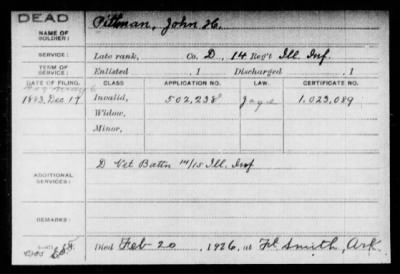 DEAD
NAME OF SOLDIER: Pittman, John H.
SERVICE: Late rank, Co. D, 14 Reg't Ill. Inf.
TERM OF SERVICE: Enlisted , 1 Discharged , 1
DATE OF FILING. CLASS APPLICATION NO. LAW. CERTIFICATE NO.
1883, Dec. 17 Invalid, 502,238 1.023.089
Widow,
Minor,
ADDITIONAL SERVICES: D Vet Battn 14/15 Ill. Inf
REMARKS:
Died Feb 20, 1926, at Ft. Smith, Ark.